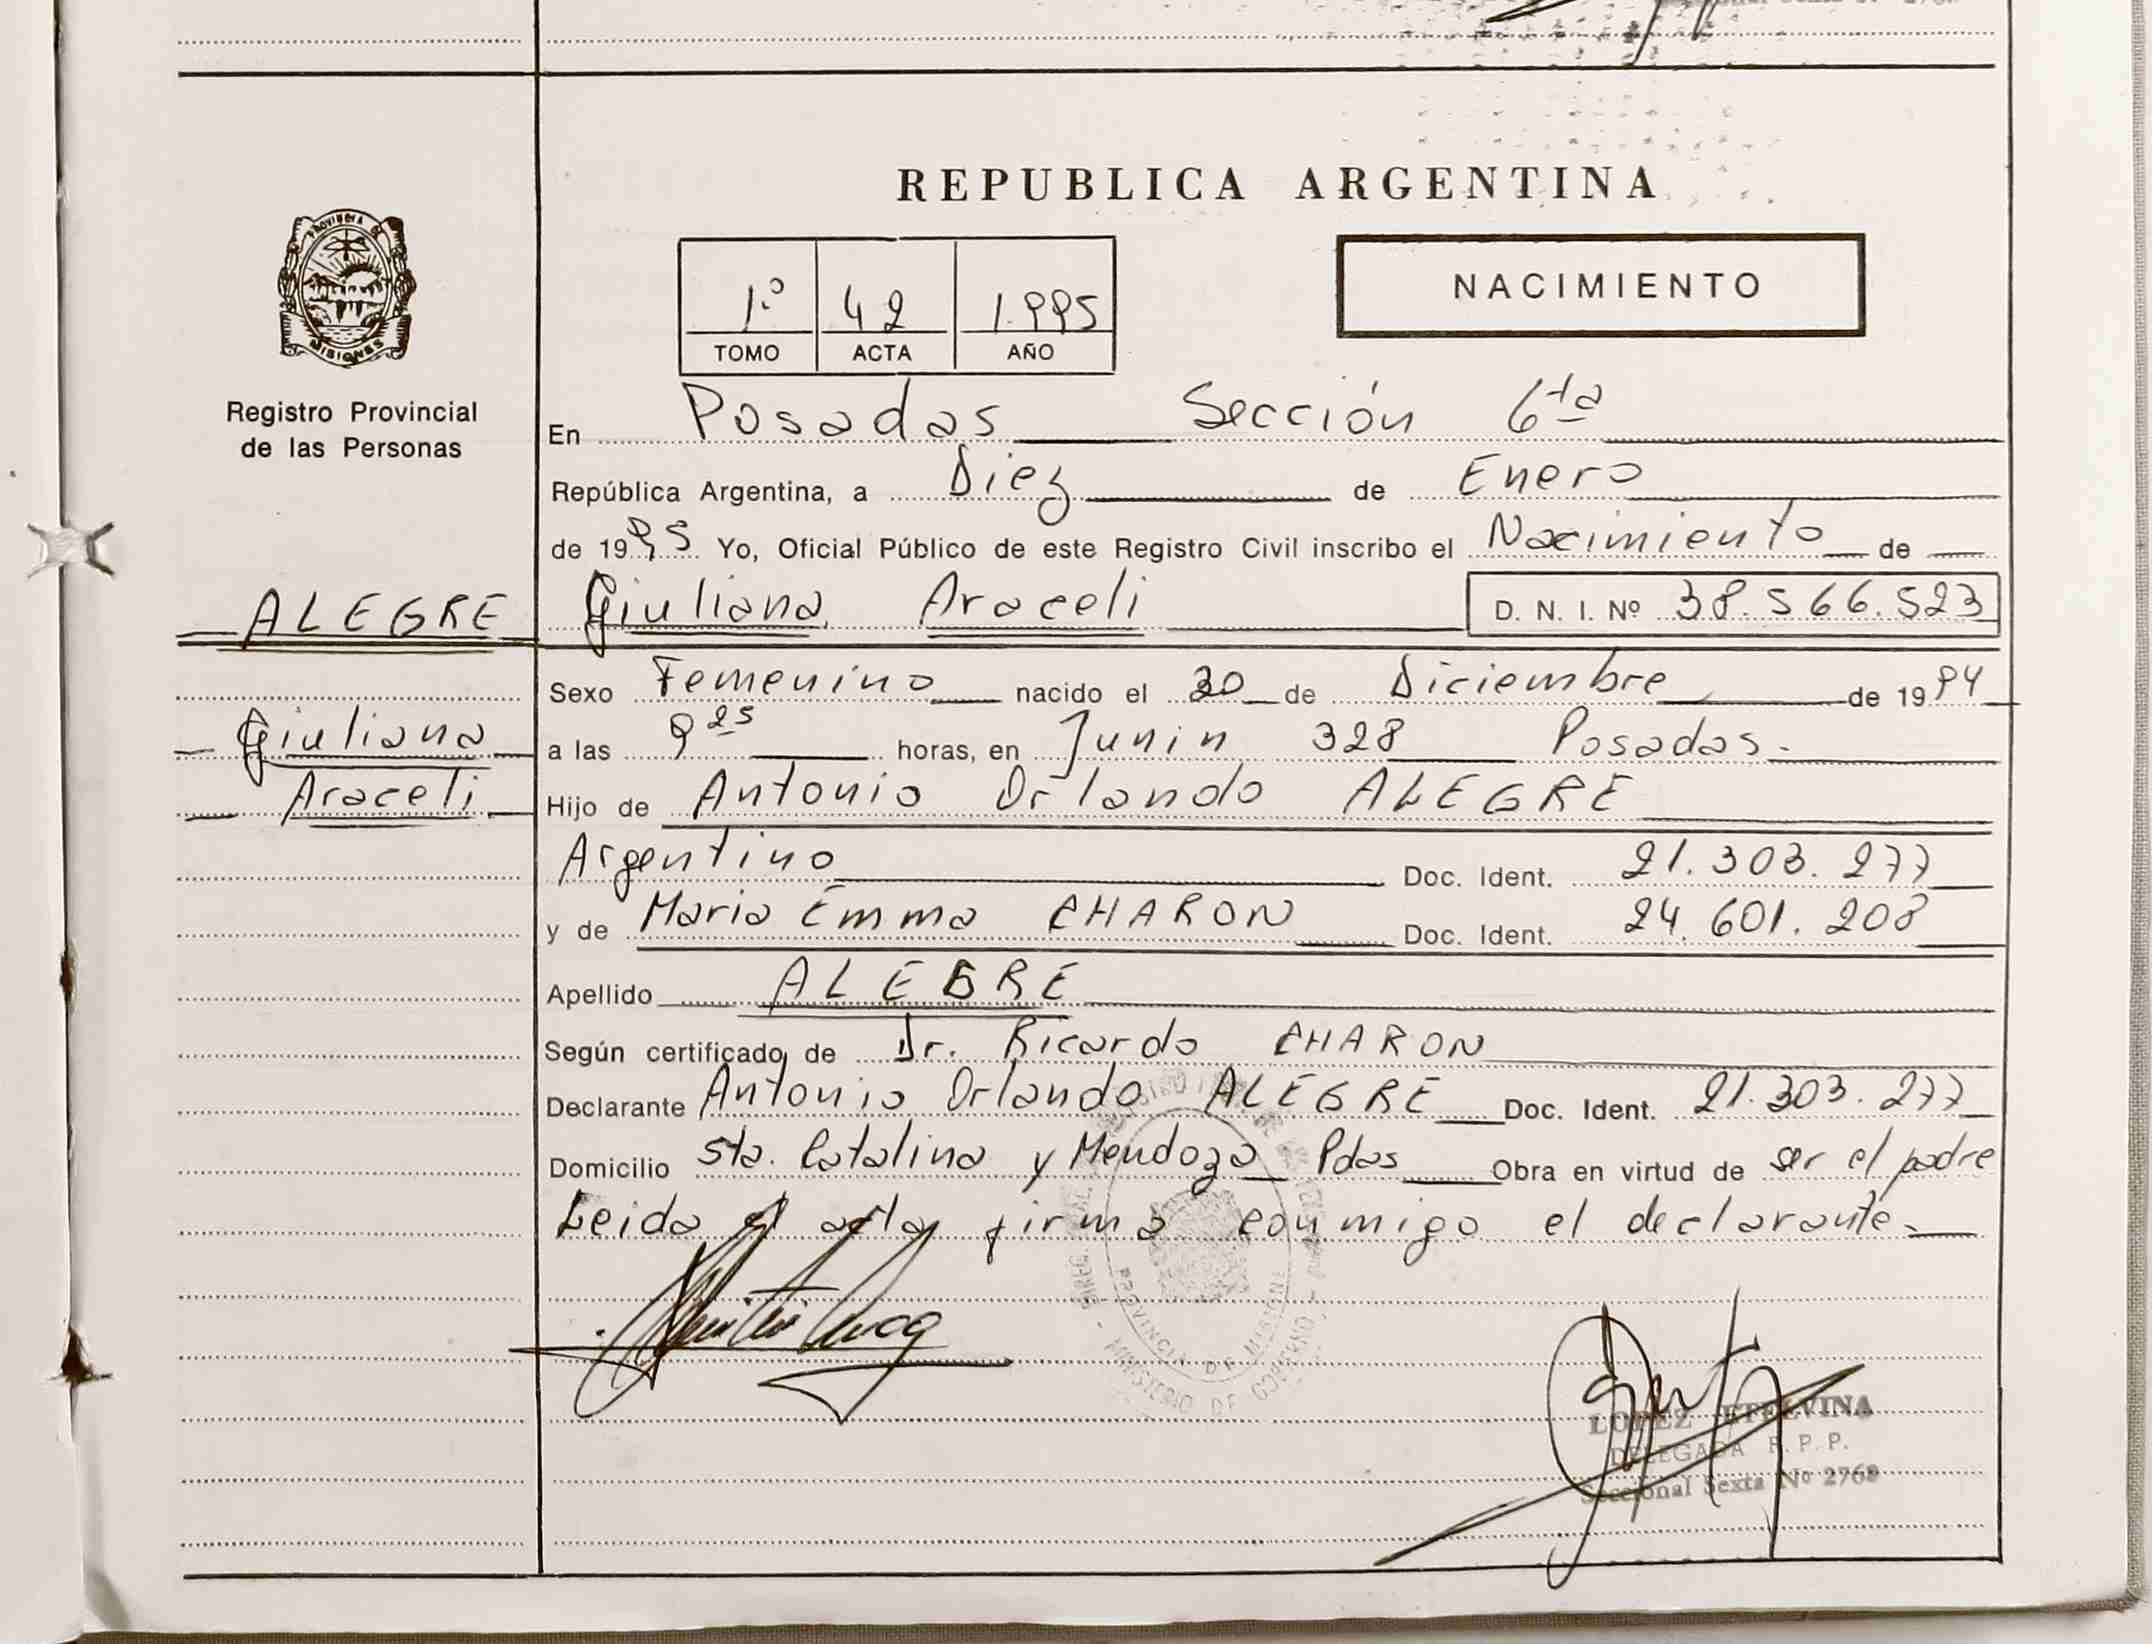 REPUBLICA ARGENTINA
PROVINCIA DE
MISIONES
Registro Provincial
de las Personas
1.º 42 1.995
TOMO ACTA AÑO
NACIMIENTO
En Posadas Sección 6ta
República Argentina, a Diez de Enero
de 1995 Yo, Oficial Público de este Registro Civil inscribo el Nacimiento de
ALEGRE Giuliana Araceli D. N. I. Nº 38.566.523
Sexo Femenino nacido el de Diciembre de 1994
Giuliana a las 9 25 horas, en Junin 328 Posadas.
Araceli Hijo de Antonio Orlando ALEGRE
Argentino Doc. Ident. 21.303.277
y de Maria Emma CHARON Doc. Ident. 24.601.208
Apellido ALEGRE
Según certificado de Dr. Ricardo CHARON
Declarante Antonio Orlando ALEGRE Doc. Ident. 21.303.277
Domicilio Sta. Catalina y Mendoza Pdas Obra en virtud de ser el padre
Leida el acta firma conmigo el declarante.
PROVINCIA DE MISIONES
MINISTERIO DE GOBIERNO
LOPEZ ETELVINA
DELEGADA R. P. P.
Seccional Sexta Nº 2768